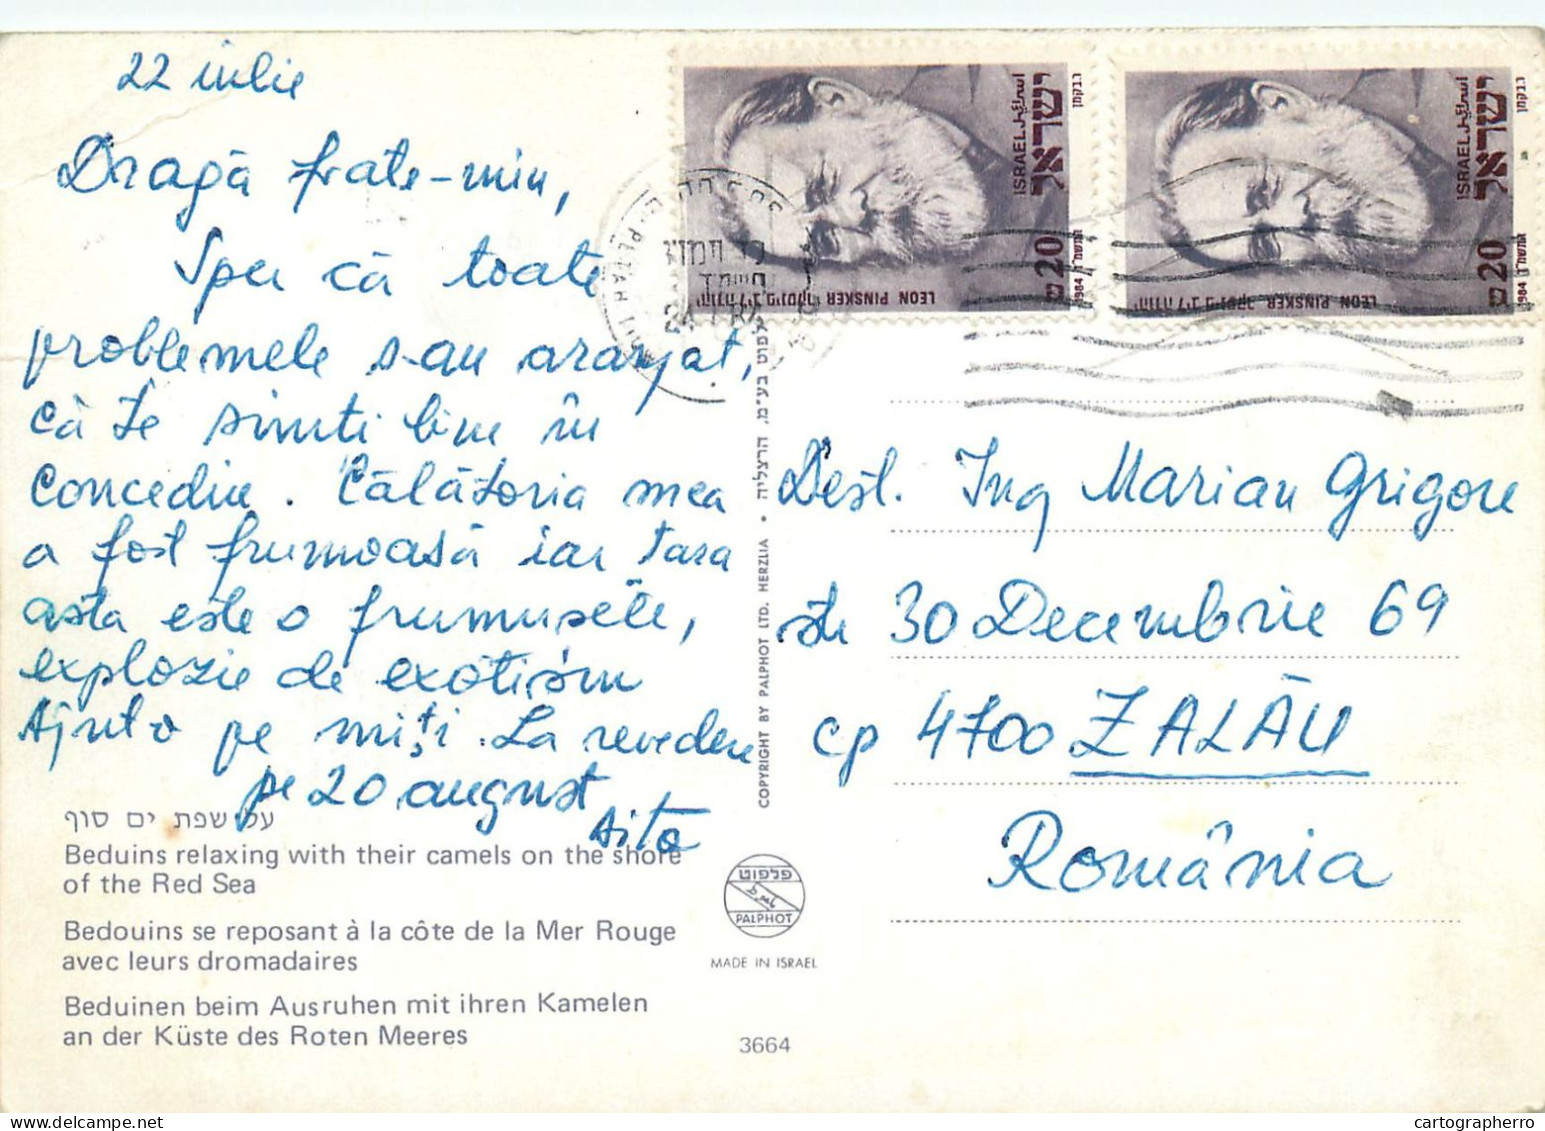 22 iulie
Dragă frate-miu,
Sper că toate
problemele s-au aranjat,
că te simți bine în
concediu. Călătoria mea
a fost frumoasă iar țara
asta este o frumusețe,
explozie de exotism
pe miți. La revedere
pe 20 august
על שפת ים סוף
Beduins relaxing with their camels on the shore
of the Red Sea
Bedouins se reposant à la côte de la Mer Rouge
avec leurs dromadaires
Beduinen beim Ausruhen mit ihren Kamelen
an der Küste des Roten Meeres
COPYRIGHT BY PALPHOT LTD. HERZLIA • פלפוט בע״מ, הרצליה
פלפוט
PALPHOT
MADE IN ISRAEL
3664
ישראל
اسرائيل
ISRAEL
20
1984 התשמ״ד
LEON PINSKER יהודה ליב פינסקר
ישראל
اسرائيل
ISRAEL
20
1984 התשמ״ד
LEON PINSKER יהודה ליב פינסקר
PETAH
Dest. Ing Marian Grigore
str 30 Decembrie 69
cp 4700 ZALĂU
România
cartographerro